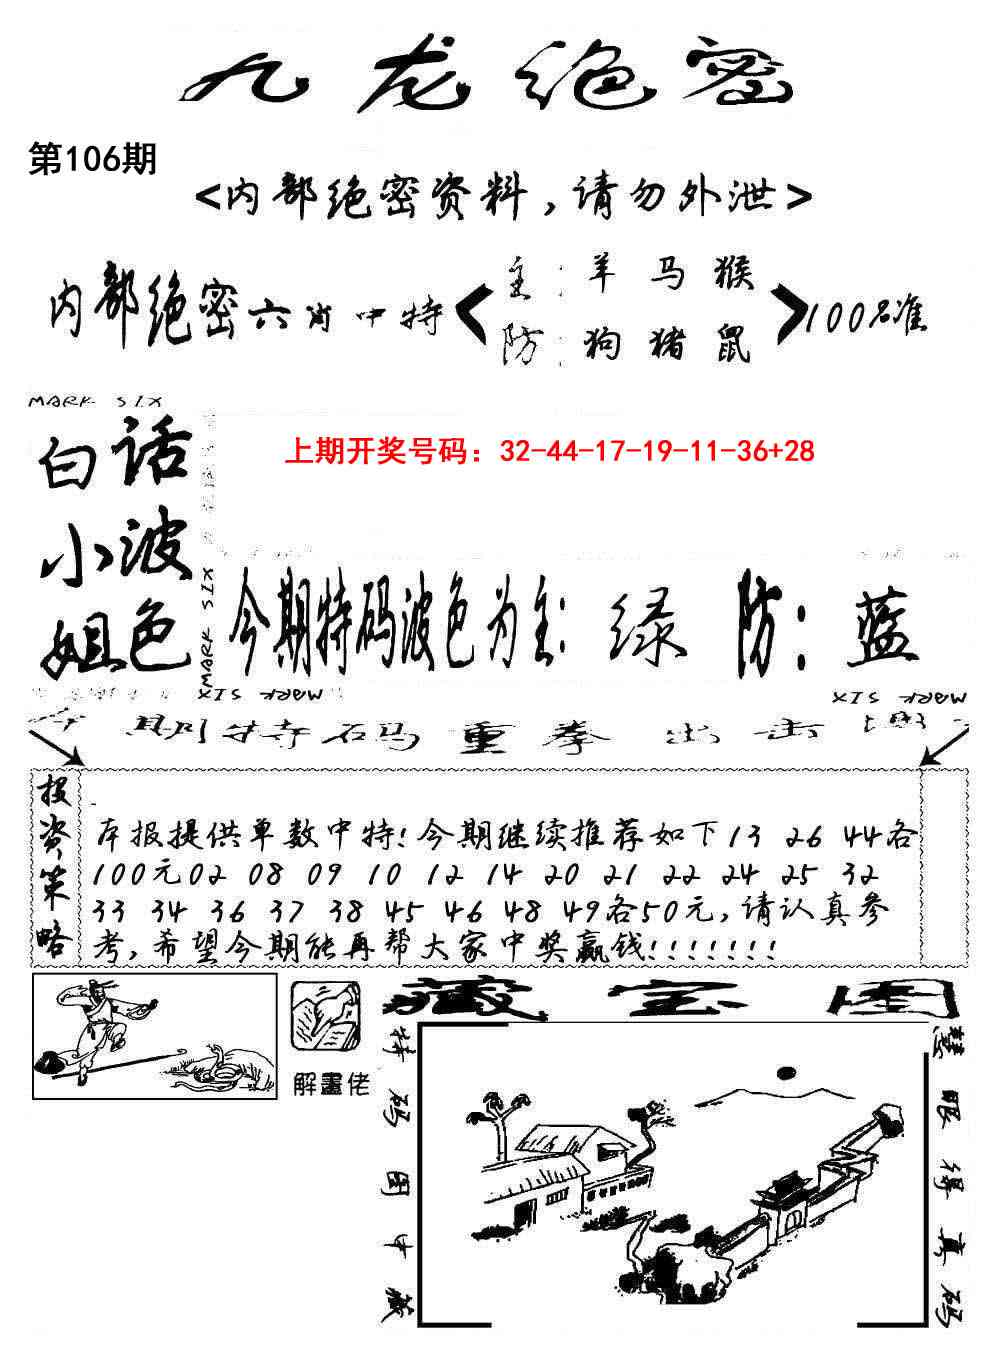 九龙绝密
第106期
<内部绝密资料,请勿外泄>
内部绝密六肖中特
主:羊 马 猴
防:狗 猪 鼠
100%准
MARK SIX
白话
小波
姐色
MARK SIX
上期开奖号码：32-44-17-19-11-36+28
今期特码波色为主: 绿 防: 蓝
MARK SIX
MARK SIX
今期特码重拳出击
投资策略
本报提供单数中特!今期继续推荐如下13 26 44各
100元02 08 09 10 12 14 20 21 22 24 25 32
33 34 36 37 38 45 46 48 49各50元,请认真参
考,希望今期能再帮大家中奖赢钱!!!!!!!
解畫佬
藏宝图
特码图中藏
慧眼得真码